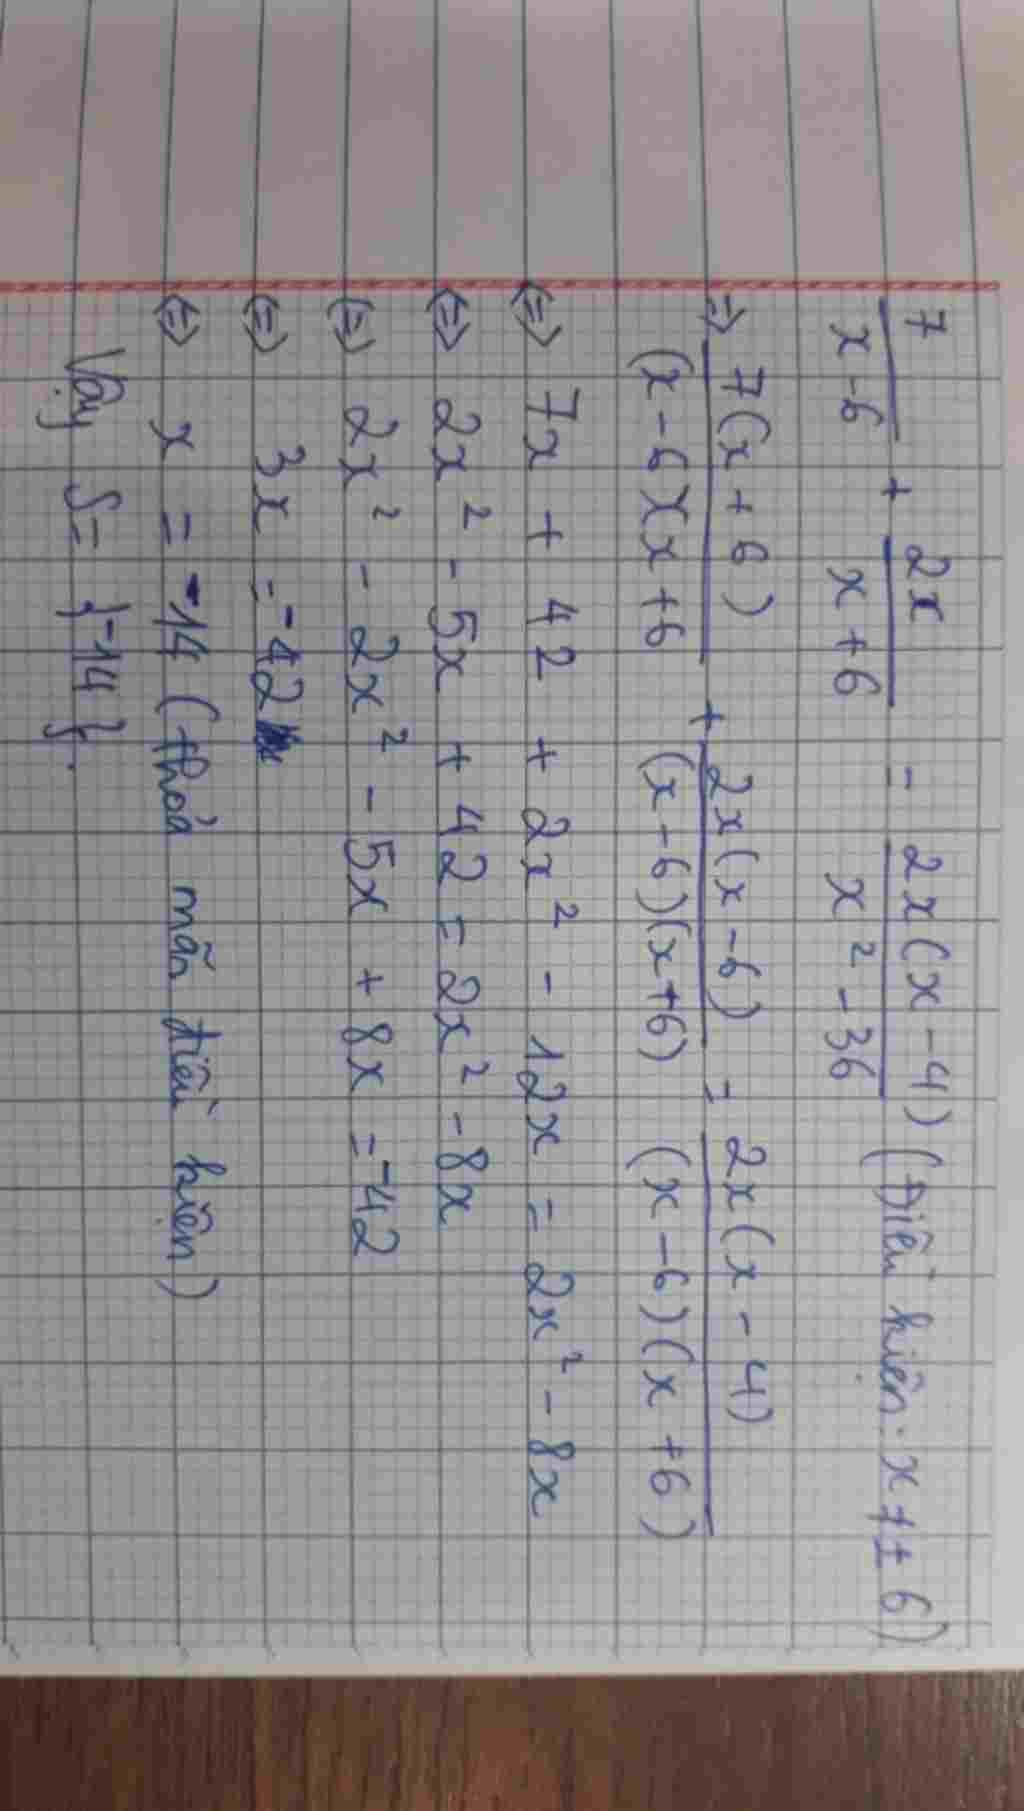 7/(x-6) + 2x/(x+6) - 2x(x-4)/(x²-36) (Điều kiện: x ≠ ± 6)
=> 7(x+6)/(x-6)(x+6 + 2x(x-6)/(x-6)(x+6) = 2x(x-4)/(x-6)(x+6)
<=> 7x + 42 + 2x² - 12x = 2x² - 8x
<=> 2x² - 5x + 42 = 2x² - 8x
<=> 2x² - 2x² - 5x + 8x = -42
<=> 3x = -42
<=> x = -14 (thỏa mãn điều kiện)
Vậy S = {-14}.